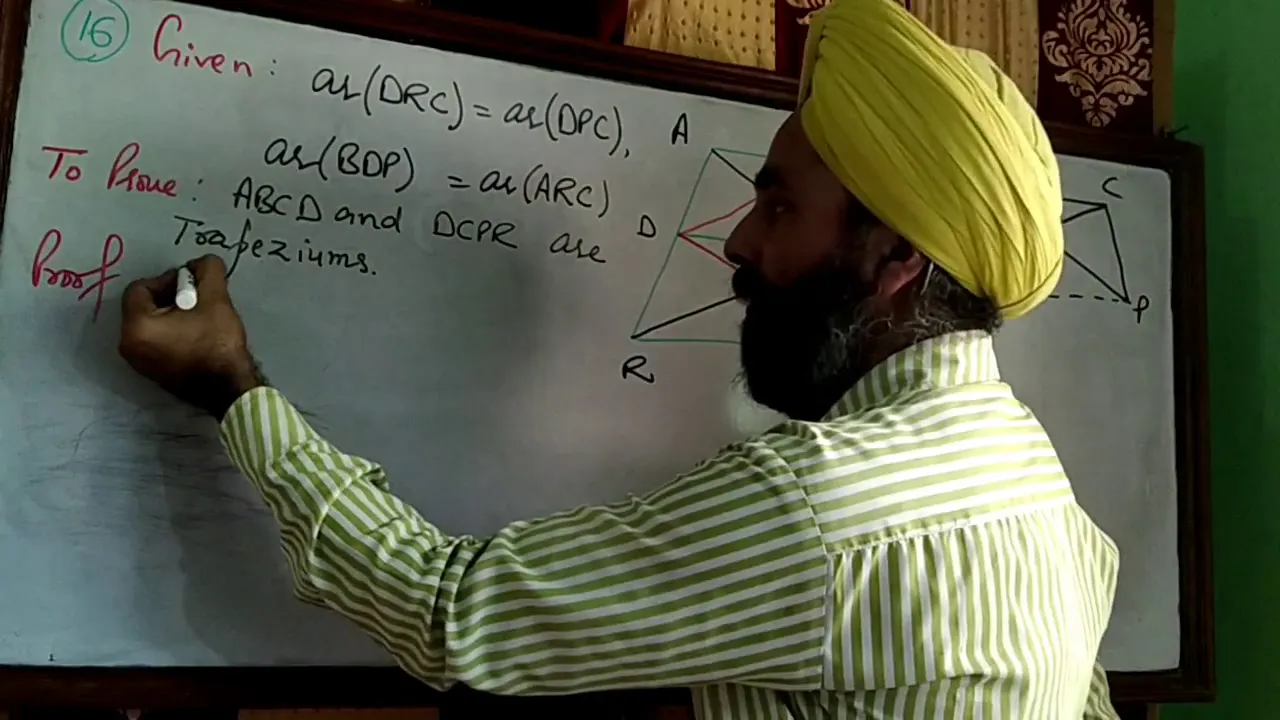 16 Given: ar(DRC) = ar(DPC),
ar(BDP) = ar(ARC)
To Prove: ABCD and DCPR are
Trapeziums.
Proof
A
C
D
P
R